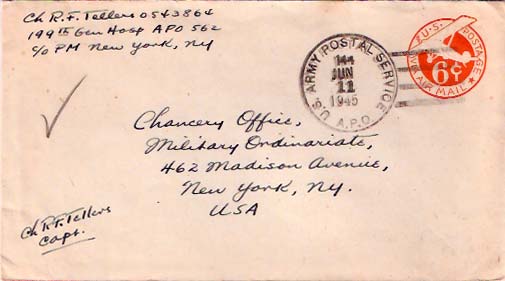 Ch R. F. Tellers 0543864
199th Gen Hosp APO 562
c/o PM New York, NY
U.S. ARMY POSTAL SERVICE
JUN
11
1945
A.P.O.
U.S. POSTAGE
6¢
VIA AIR MAIL
Chancery Office,
Military Ordinariate,
462 Madison Avenue,
New York, NY.
USA
Ch R. F. Tellers
Capt.